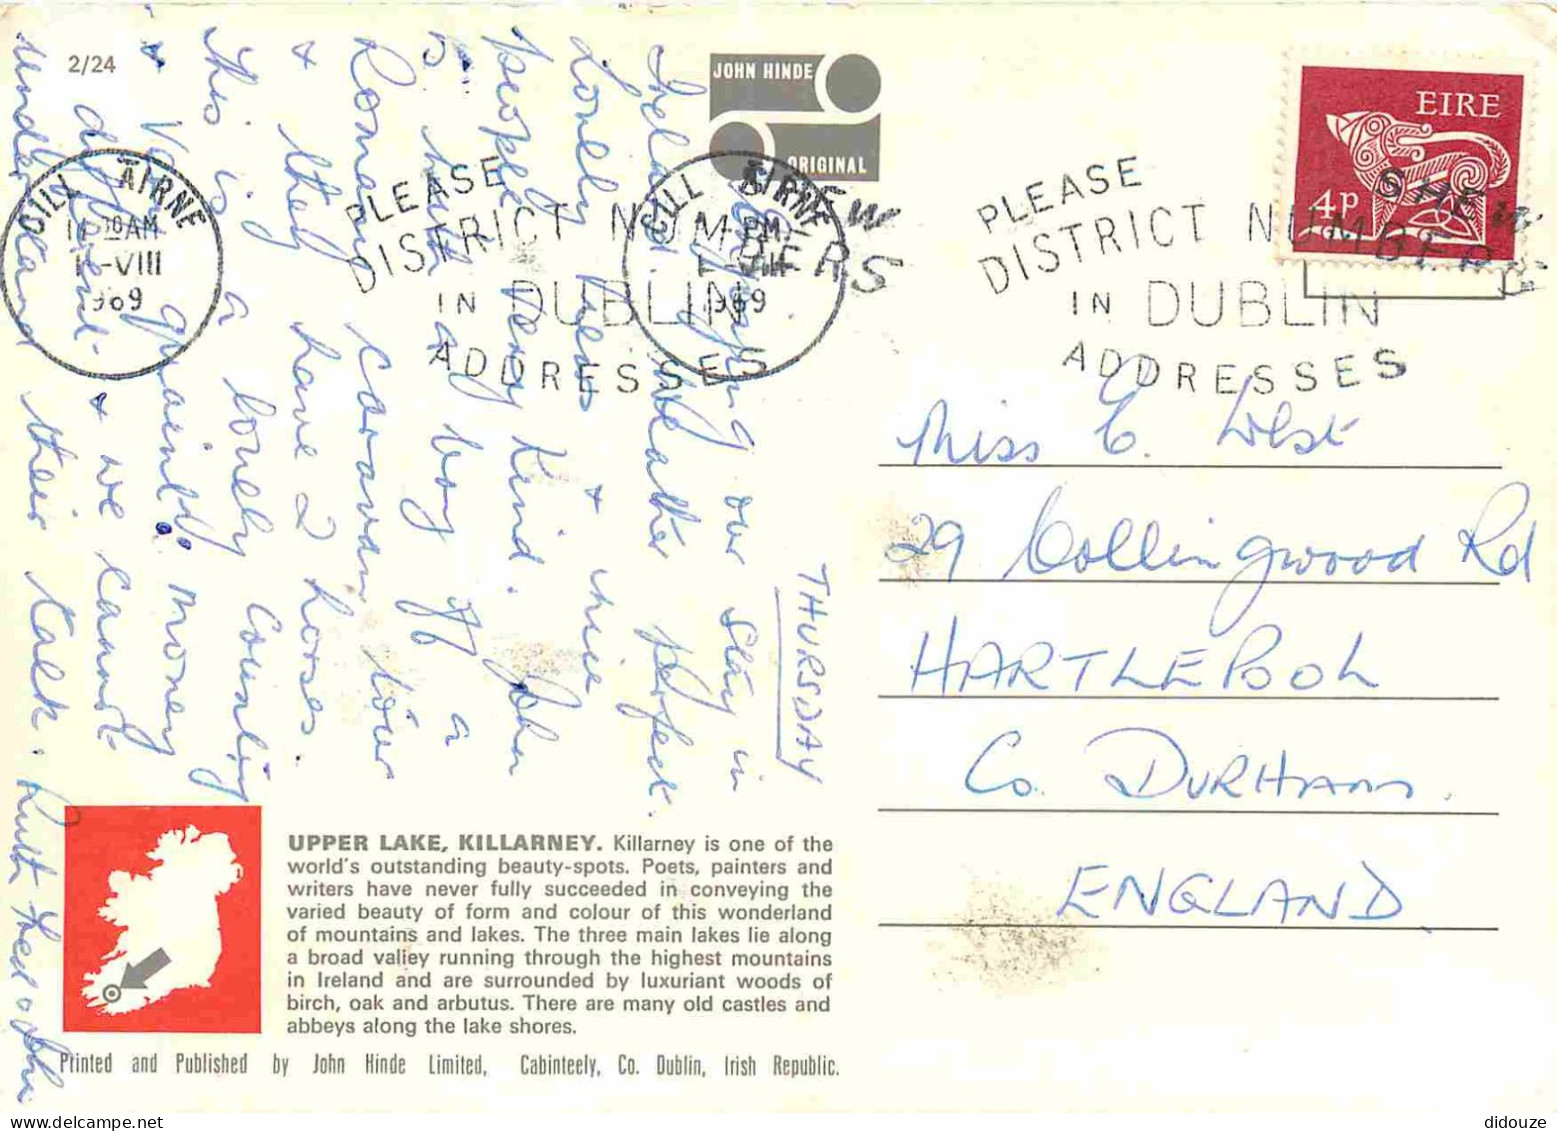 2/24
JOHN HINDE
ORIGINAL
EIRE
4p
CILL AIRNE
11 30 AM
1-VIII
1969
PLEASE SHEW
DISTRICT NUMBERS
IN DUBLIN
ADDRESSES
CILL AIRNE
PM
1-VIII
1969
PLEASE SHEW
DISTRICT NUMBERS
IN DUBLIN
ADDRESSES
THURSDAY
our stay in
Ireland. Weather perfect.
Lovely views & nice
people very kind. John
is having a
Romany caravan tour
& they have 2 horses.
This is a lovely country
& quaint!! money
different & we cannot
understand their talk. Ruth Fred & John
Miss E. West
29 Collingwood Rd
HARTLEPOOL
Co. DURHAM.
ENGLAND
UPPER LAKE, KILLARNEY. Killarney is one of the
world's outstanding beauty-spots. Poets, painters and
writers have never fully succeeded in conveying the
varied beauty of form and colour of this wonderland
of mountains and lakes. The three main lakes lie along
a broad valley running through the highest mountains
in Ireland and are surrounded by luxuriant woods of
birch, oak and arbutus. There are many old castles and
abbeys along the lake shores.
Printed and Published by John Hinde Limited, Cabinteely, Co. Dublin, Irish Republic.
didouze